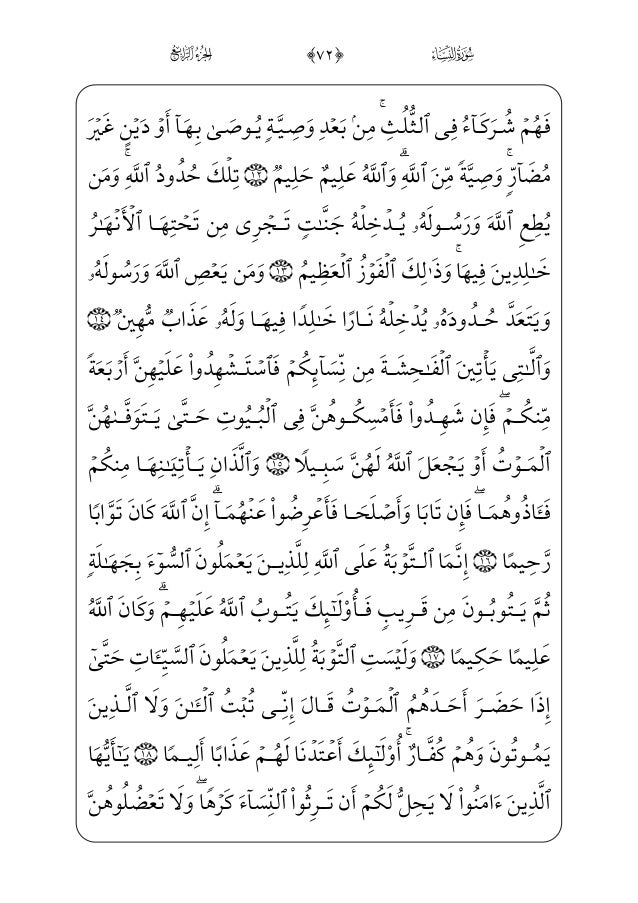 سُورَةُ النِّسَاءِ ﴿٧٢﴾ الجُزْءُ الرَّابِعُ
فَهُمۡ شُرَكَآءُ فِى ٱلثُّلُثِۚ مِنۢ بَعۡدِ وَصِيَّةٖ يُوصَىٰ بِهَآ أَوۡ دَيۡنٍ غَيۡرَ
مُضَآرّٖۚ وَصِيَّةٗ مِّنَ ٱللَّهِۗ وَٱللَّهُ عَلِيمٌ حَلِيمٞ ١٢ تِلۡكَ حُدُودُ ٱللَّهِۚ وَمَن
يُطِعِ ٱللَّهَ وَرَسُولَهُۥ يُدۡخِلۡهُ جَنَّٰتٖ تَجۡرِى مِن تَحۡتِهَا ٱلۡأَنۡهَٰرُ
خَٰلِدِينَ فِيهَاۚ وَذَٰلِكَ ٱلۡفَوۡزُ ٱلۡعَظِيمُ ١٣ وَمَن يَعۡصِ ٱللَّهَ وَرَسُولَهُۥ
وَيَتَعَدَّ حُدُودَهُۥ يُدۡخِلۡهُ نَارًا خَٰلِدٗا فِيهَا وَلَهُۥ عَذَابٞ مُّهِينٞ ١٤
وَٱلَّٰتِى يَأۡتِينَ ٱلۡفَٰحِشَةَ مِن نِّسَآئِكُمۡ فَٱسۡتَشۡهِدُواْ عَلَيۡهِنَّ أَرۡبَعَةٗ
مِّنكُمۡۖ فَإِن شَهِدُواْ فَأَمۡسِكُوهُنَّ فِى ٱلۡبُيُوتِ حَتَّىٰ يَتَوَفَّىٰهُنَّ
ٱلۡمَوۡتُ أَوۡ يَجۡعَلَ ٱللَّهُ لَهُنَّ سَبِيلٗا ١٥ وَٱلَّذَانِ يَأۡتِيَٰنِهَا مِنكُمۡ
فَـَٔاذُوهُمَاۖ فَإِن تَابَا وَأَصۡلَحَا فَأَعۡرِضُواْ عَنۡهُمَآۗ إِنَّ ٱللَّهَ كَانَ تَوَّابٗا
رَّحِيمًا ١٦ إِنَّمَا ٱلتَّوۡبَةُ عَلَى ٱللَّهِ لِلَّذِينَ يَعۡمَلُونَ ٱلسُّوٓءَ بِجَهَٰلَةٖ
ثُمَّ يَتُوبُونَ مِن قَرِيبٖ فَأُوْلَٰٓئِكَ يَتُوبُ ٱللَّهُ عَلَيۡهِمۡۗ وَكَانَ ٱللَّهُ
عَلِيمًا حَكِيمٗا ١٧ وَلَيۡسَتِ ٱلتَّوۡبَةُ لِلَّذِينَ يَعۡمَلُونَ ٱلسَّيِّـَٔاتِ حَتَّىٰٓ
إِذَا حَضَرَ أَحَدَهُمُ ٱلۡمَوۡتُ قَالَ إِنِّى تُبۡتُ ٱلۡـَٰٔنَ وَلَا ٱلَّذِينَ
يَمُوتُونَ وَهُمۡ كُفَّارٌۚ أُوْلَٰٓئِكَ أَعۡتَدۡنَا لَهُمۡ عَذَابًا أَلِيمٗا ١٨ يَٰٓأَيُّهَا
ٱلَّذِينَ ءَامَنُواْ لَا يَحِلُّ لَكُمۡ أَن تَرِثُواْ ٱلنِّسَآءَ كَرۡهٗاۖ وَلَا تَعۡضُلُوهُنَّ